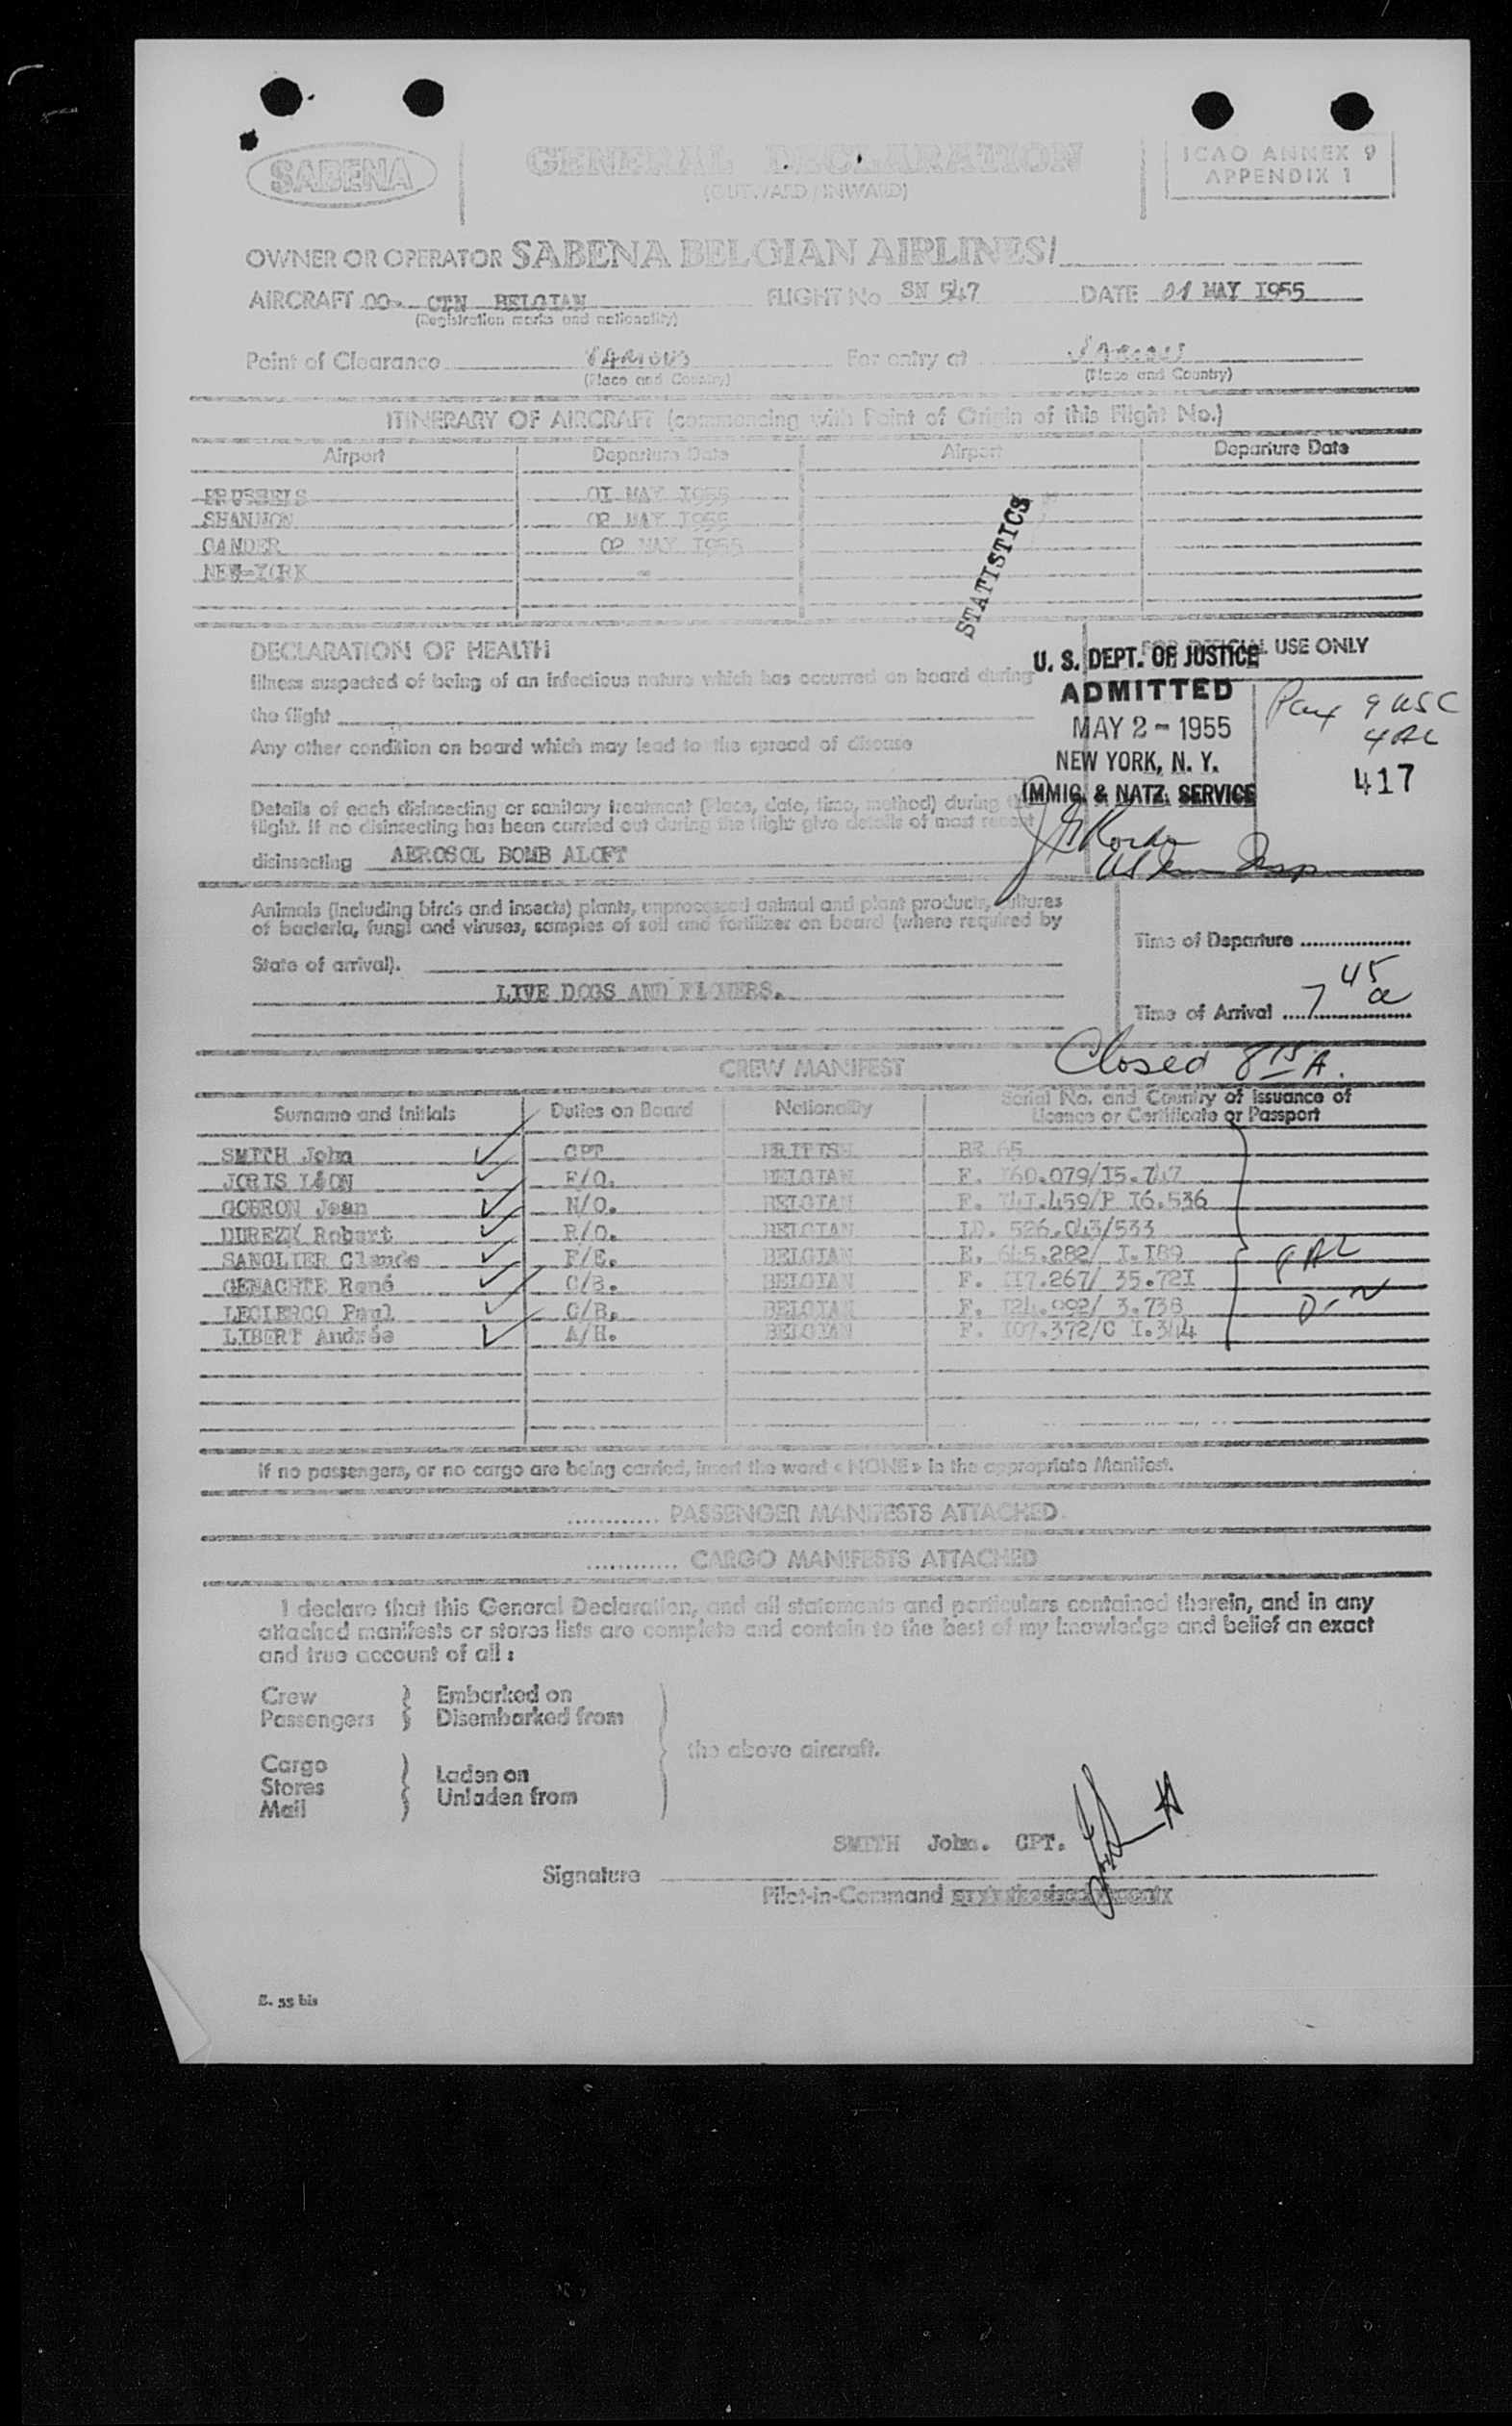 SABENA
GENERAL DECLARATION
(OUTWARD / INWARD)
ICAO ANNEX 9
APPENDIX 1
OWNER OR OPERATOR SABENA BELGIAN AIRLINES/
AIRCRAFT OO- CTN BELGIAN FLIGHT No SN 547 DATE 01 MAY 1955
(Registration marks and nationality)
Point of Clearance VARIOUS For entry at VARIOUS
(Place and Country) (Place and Country)
ITINERARY OF AIRCRAFT (commencing with Point of Origin of this Flight No.)
Airport Departure Date Airport Departure Date
BRUSSELS 01 MAY 1955
SHANNON 02 MAY 1955
GANDER 02 MAY 1955
NEW-YORK -
STATISTICS
DECLARATION OF HEALTH
FOR OFFICIAL USE ONLY
Illness suspected of being of an infectious nature which has occurred on board during
the flight
Any other condition on board which may lead to the spread of disease
U. S. DEPT. OF JUSTICE
ADMITTED
MAY 2 - 1955
NEW YORK, N. Y.
IMMIG. & NATZ. SERVICE
Pax 9 USC
4 AL
417
Details of each disinsecting or sanitary treatment (place, date, time, method) during the
flight. If no disinsecting has been carried out during the flight give details of most recent
disinsecting AEROSOL BOMB ALOFT
Animals (including birds and insects) plants, unprocessed animal and plant products, cultures
of bacteria, fungi and viruses, samples of soil and fertilizer on board (where required by
State of arrival).
LIVE DOGS AND FLOWERS.
Time of Departure ...................
Time of Arrival .... 7 45 a
Closed 8 15 A.
CREW MANIFEST
Surname and Initials Duties on Board Nationality Serial No. and Country of Issuance of
Licence or Certificate or Passport
SMITH John CPT BRITISH BE 65
JORIS LéON F/O. BELGIAN F. 160.079/I5.747
GOBRON Jean N/O. BELGIAN F. 141.459/P I6.536
DUREZK Robert R/O. BELGIAN ID. 526.043/533
SANGLIER Claude F/E. BELGIAN E. 645.282/ I.I89
GENACHTE René C/B. BELGIAN F. 117.267/ 35.72I
LECLERCQ Paul C/B. BELGIAN F. 124.992/ 3.738
LIBERT Andrée A/H. BELGIAN F. 107.372/C I.344
If no passengers, or no cargo are being carried, insert the word « NONE » in the appropriate Manifest.
............ PASSENGER MANIFESTS ATTACHED.
............ CARGO MANIFESTS ATTACHED
I declare that this General Declaration, and all statements and particulars contained therein, and in any
attached manifests or stores lists are complete and contain to the best of my knowledge and belief an exact
and true account of all :
Crew Embarked on
Passengers Disembarked from
the above aircraft.
Cargo
Stores Laden on
Mail Unladen from
SMITH John. CPT.
Signature
Pilot-in-Command
E. 55 bis